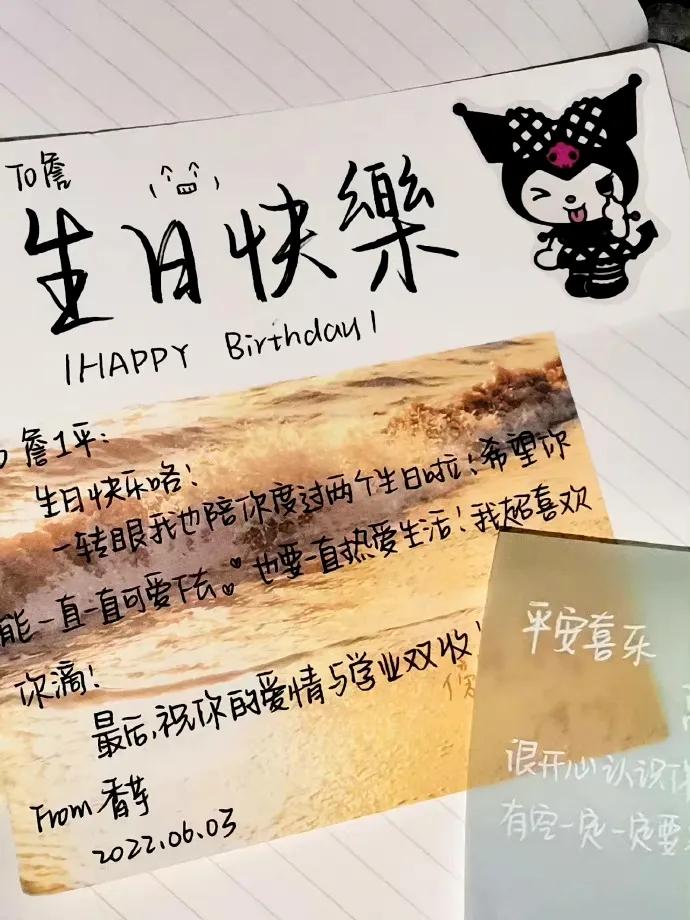 To 詹
生日快樂
HAPPY Birthday
詹1平：
生日快乐咯！
一转眼我也陪你度过两个生日啦！希望你
能一直一直可爱下去。也要一直热爱生活！我超喜欢
你滴！
最后，祝你的爱情与学业双收！
From 香芋
2022.06.03
平安喜乐
很开心认识
有空一定一定要